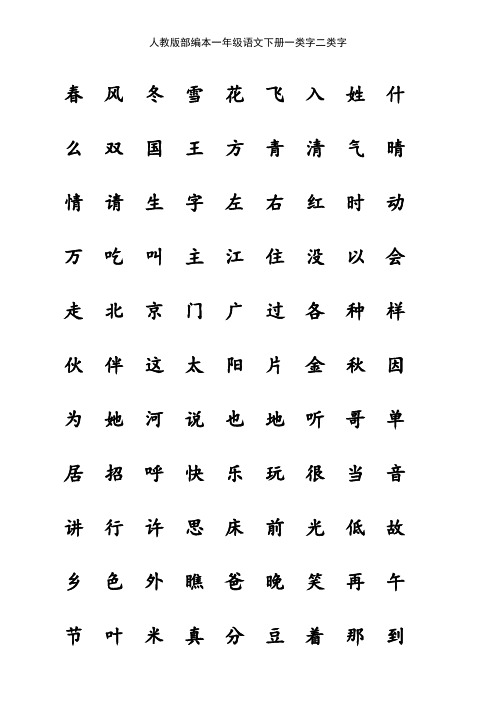 人教版部编本一年级语文下册一类字二类字
春 风 冬 雪 花 飞 入 姓 什
么 双 国 王 方 青 清 气 晴
情 请 生 字 左 右 红 时 动
万 吃 叫 主 江 住 没 以 会
走 北 京 门 广 过 各 种 样
伙 伴 这 太 阳 片 金 秋 因
为 她 河 说 也 地 听 哥 单
居 招 呼 快 乐 玩 很 当 音
讲 行 许 思 床 前 光 低 故
乡 色 外 瞧 爸 晚 笑 再 午
节 叶 米 真 分 豆 着 那 到